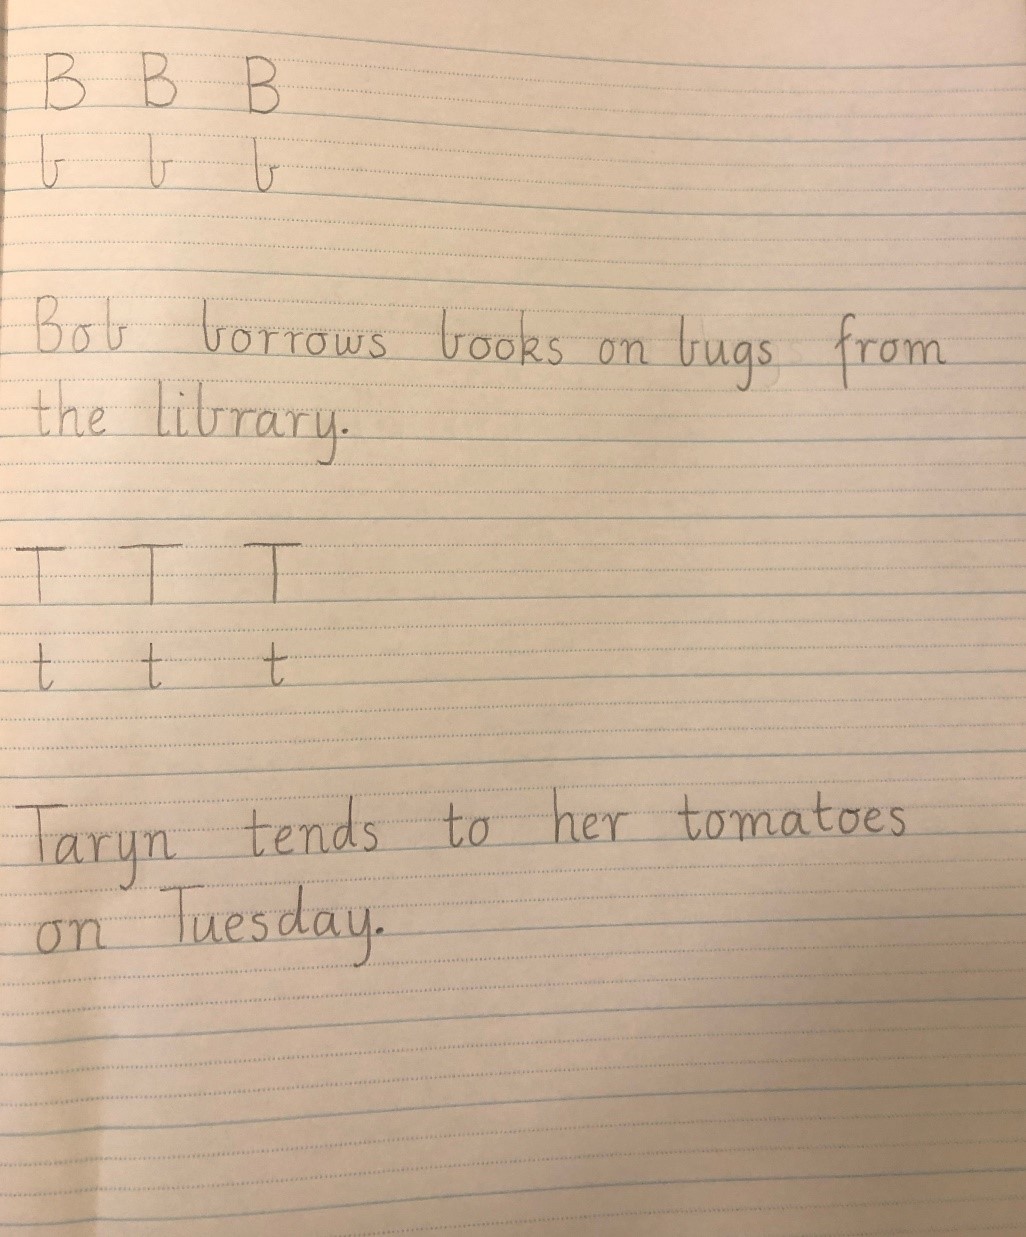 B B B
b b b
Bob borrows books on bugs from
the library.
T T T
t t t
Taryn tends to her tomatoes
on Tuesday.